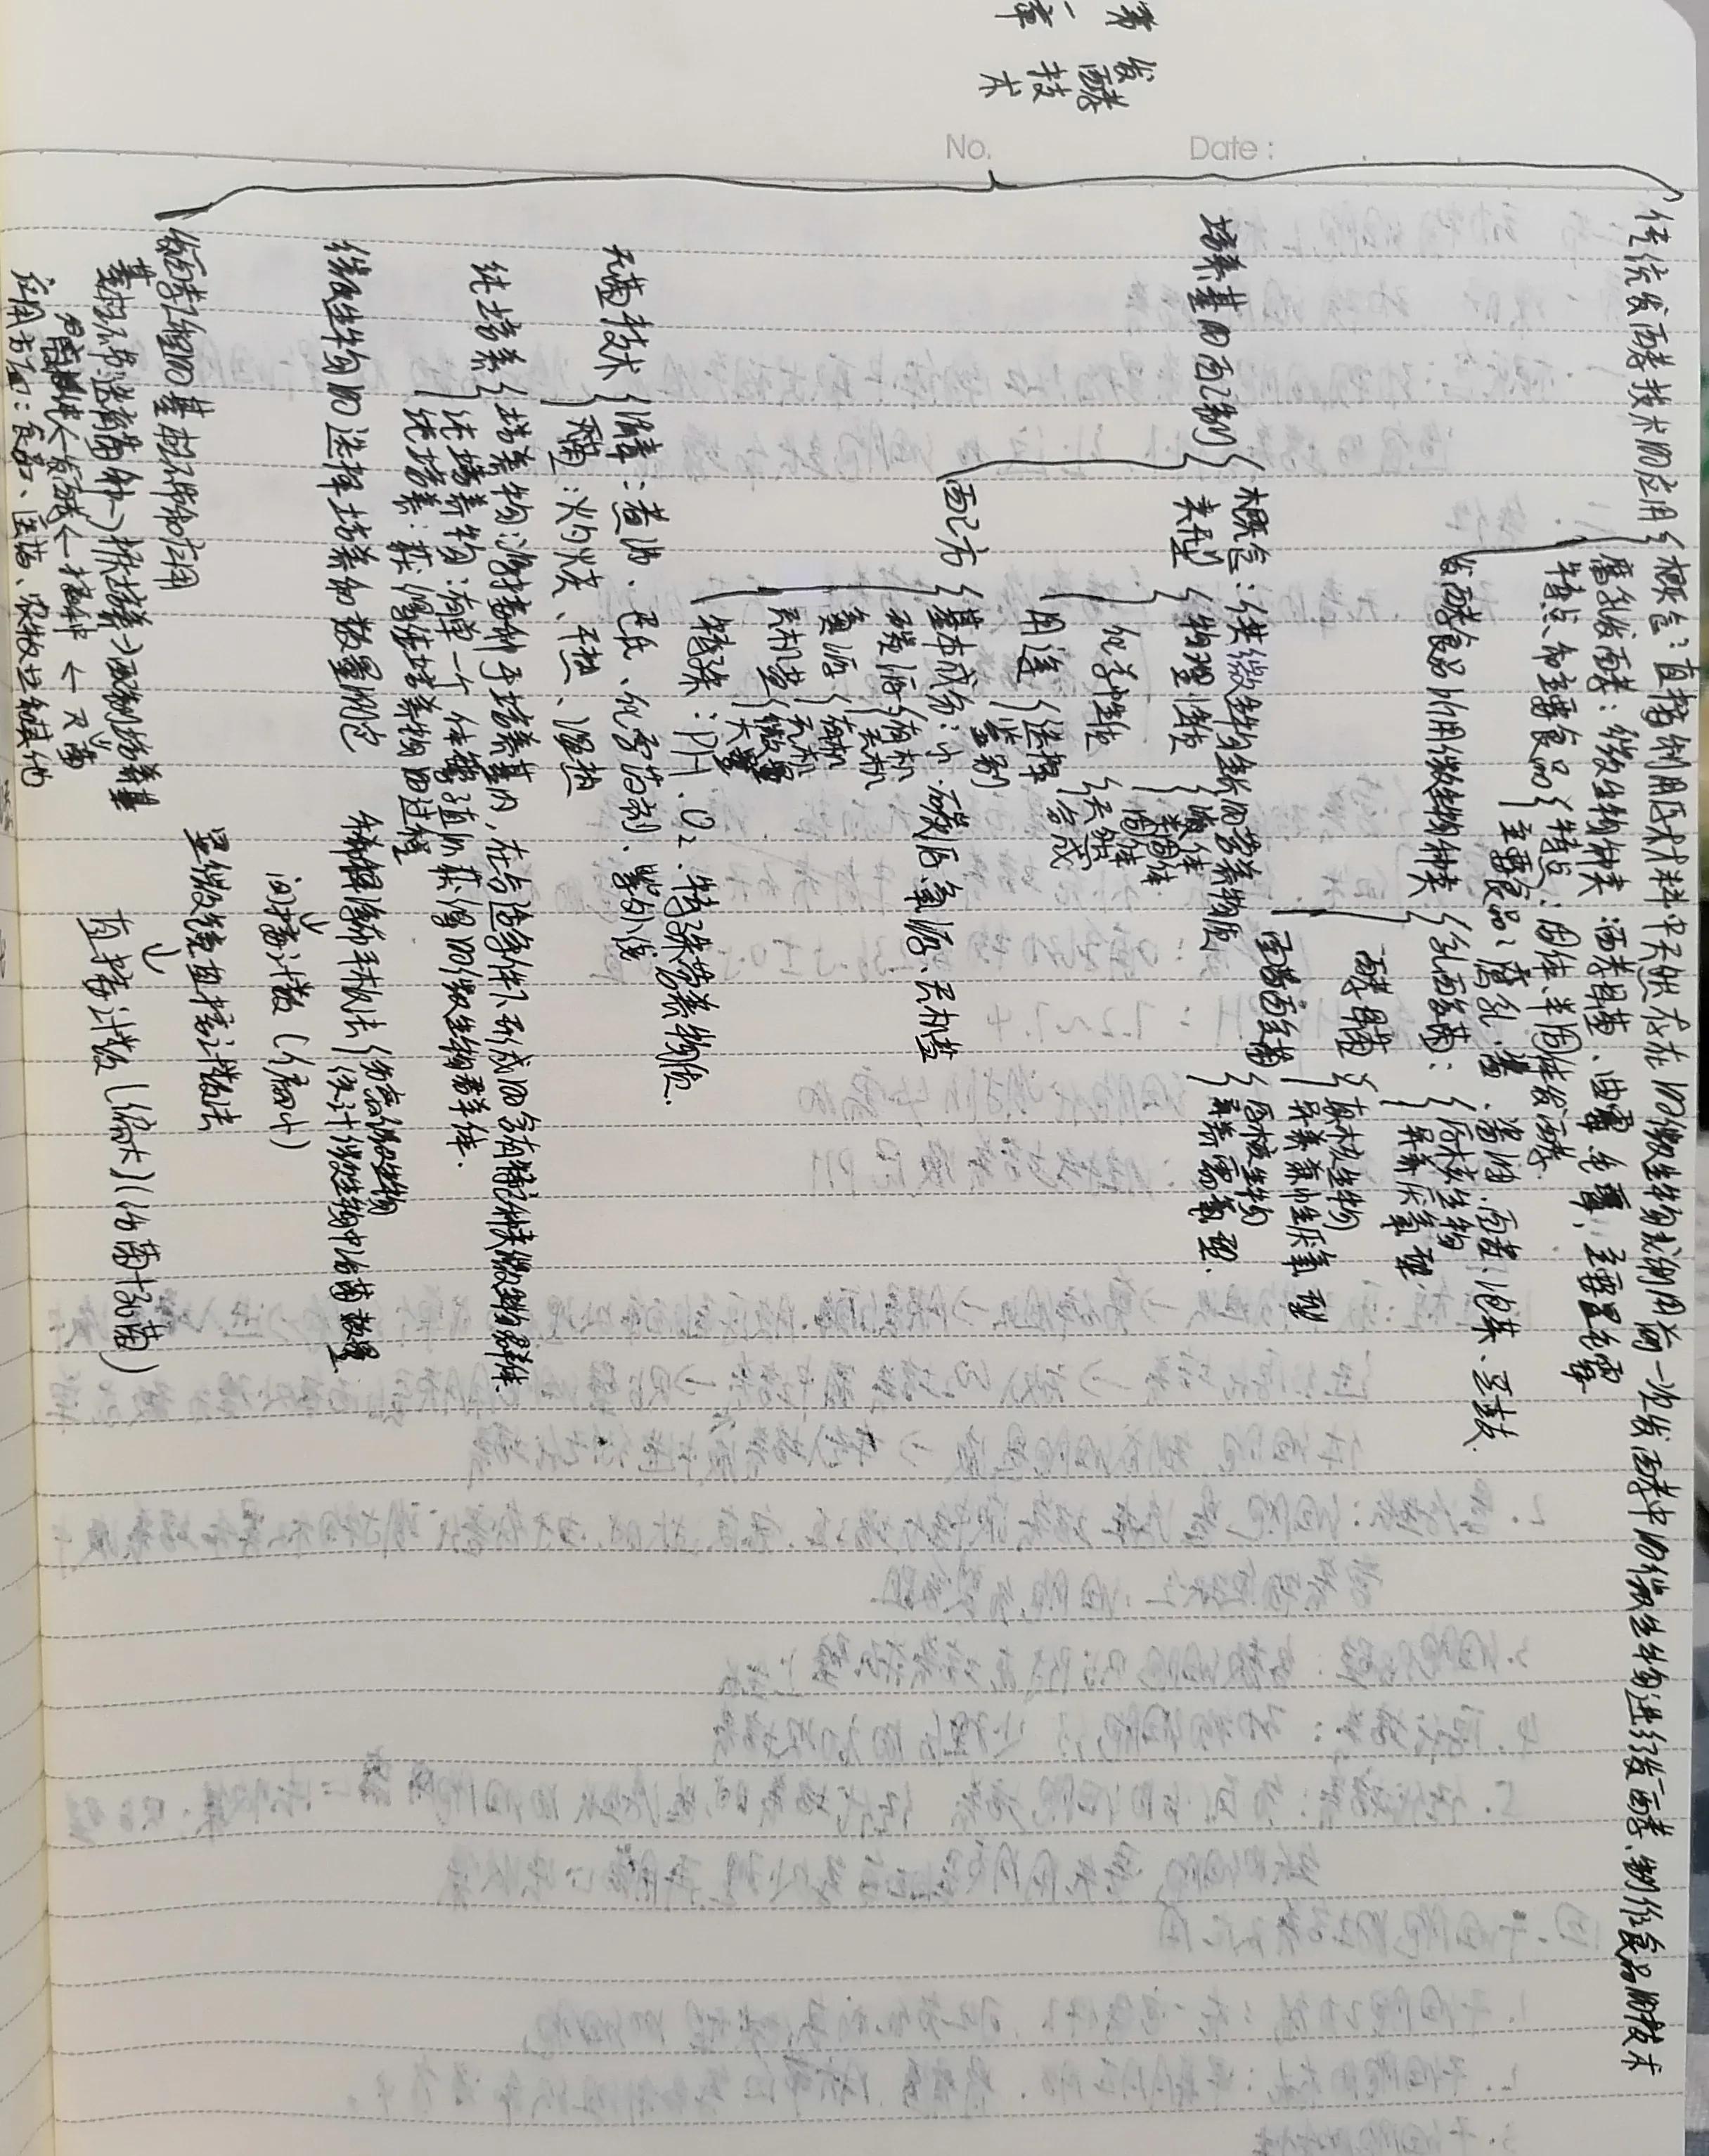 No. Date:
第一章
发酵技术
传统发酵技术的应用
概念：直接利用原材料中天然存在的微生物或利用前一次发酵中的微生物进行发酵、制作食品的技术
腐乳发酵：微生物种类：酒酵母菌、曲霉、毛霉，主要是毛霉
特点和主要食品
特点：固体、半固体发酵
主要食品：腐乳、酱、酱油、醋、泡菜、豆豉.
发酵食品所用微生物种类
乳酸菌：
原核生物
异养厌氧型
酵母菌
真核生物
异养兼性厌氧型
醋酸菌
原核生物
异养需氧型.
培养基的配制
概念：供微生物生长的营养物质
类型
物理性质
液体
半固体
固体
化学性质
天然
合成
用途
选择
鉴别
配方
基本成分：水、碳源、氮源、无机盐
碳源
有机
无机
氮源
有机
无机
无机盐
微量
大量
特殊：PH、O₂、特殊营养物质.
无菌技术
消毒：煮沸、巴氏、化学药剂、紫外线
灭菌：灼烧、干热、湿热
纯培养
培养物：将接种于培养基内，在合适条件下形成的含有特定种类微生物的群体.
纯培养物：有单一个体繁殖所获得的微生物群体.
纯培养：获得纯培养物的过程
微生物的选择培养和数量测定
稀释涂布平板法
分离微生物
统计微生物中活菌数量
间接计数（偏小）
显微镜直接计数法
直接计数（偏大）（活菌+死菌）
发酵工程的基本环节和应用
基本环节：选育菌种→扩大培养→配制培养基
→灭菌→接种→发酵→
应用方面：食品、医药、农牧业、其他